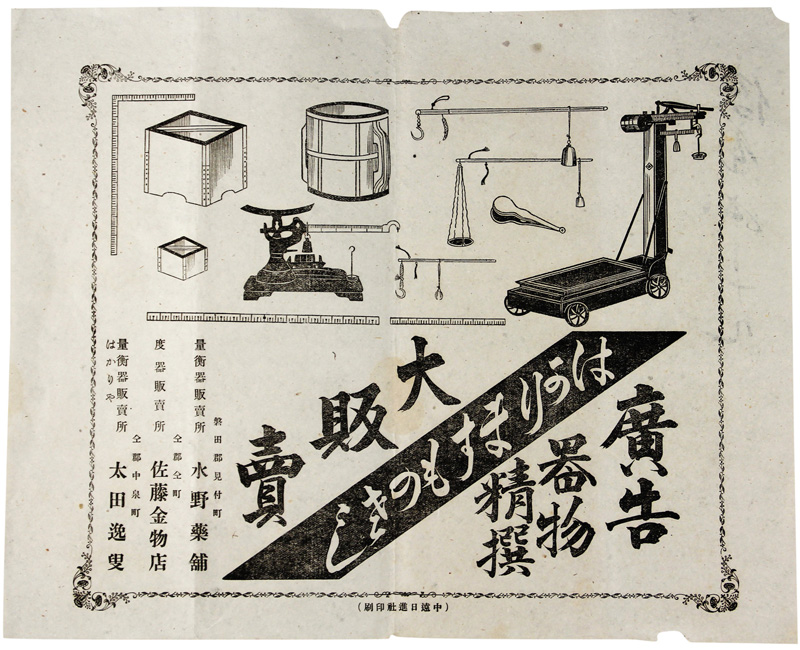 廣告
器物
精撰
はかりますものさし
大販賣
磐田郡見付町
量衡器販賣所 水野藥舖
仝郡仝町
度器販賣所 佐藤金物店
仝郡中泉町
量衡器販賣所 太田逸叟
はかりや
(中遠日進社印刷)